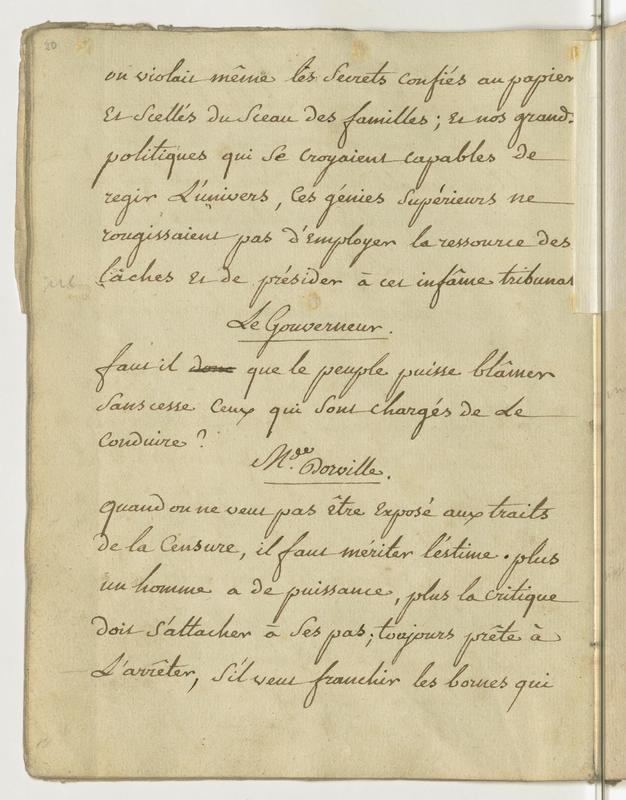 20
on violait même les Secrets confiés au papier
Et Scellés du Sceau des familles ; Et nos grand.
politiques qui Se croyaient capables de
regir L'univers, Ces génies Supérieurs ne
rougissaient pas d'Employer la ressource des
lâches Et de présider à cet infâme tribunal
Le Gouverneur.
faut il donc que le peuple puisse blâmer
Sans cesse Ceux qui Sont chargés de Le
Conduire ?
M.de Dorville.
quand on ne veut pas être Exposé aux traits
de la Censure, il faut mériter l'éstime . plus
un homme a de puissance, plus la critique
doit S'attacher à Ses pas ; toujours prête à
L'arrêter, S'il veut franchir les bornes qui